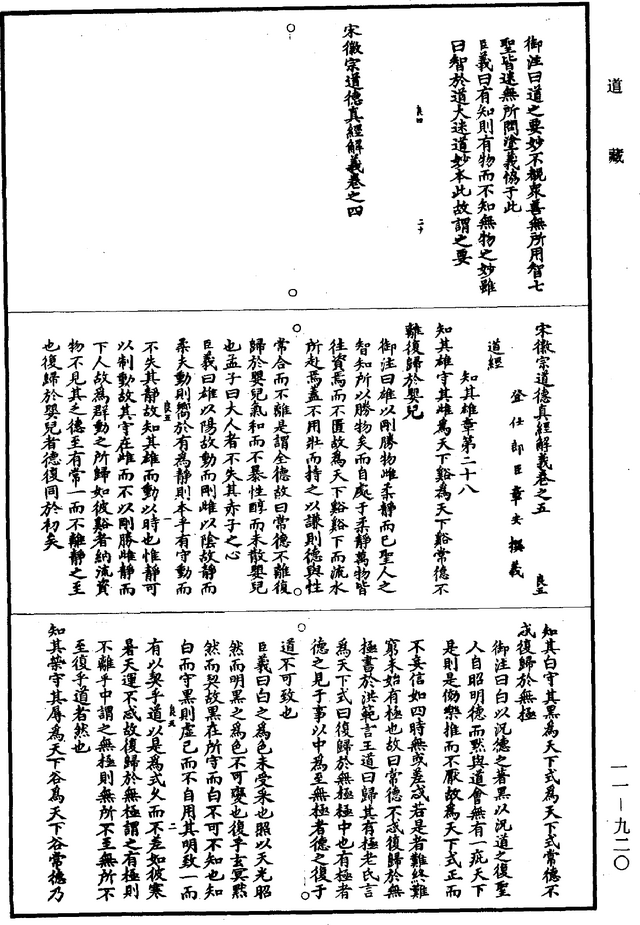 道藏
御注曰道之要妙不覩衆善無所用智七
聖皆迷無所問塗義協于此
臣義曰有知則有物而不知無物之妙雖
曰智於道大迷道妙本此故謂之要
良四
二十
宋徽宗道德真經解義卷之四
宋徽宗道德真經解義卷之五
良五
登仕郎臣章安撰義
道經
知其雄章第二十八
知其雄守其雌為天下谿為天下谿常德不
離復歸於嬰兒
御注曰雄以剛勝物雌柔靜而已聖人之
智知所以勝物矣而自處於柔靜萬物皆
往資焉而不匱故為天下谿谿下而流水
所赴焉蓋不用壯而持之以謙則德與性
常合而不離是謂全德故曰常德不離復
歸於嬰兒氣和而不暴性醇而未散嬰兒
也孟子曰大人者不失其赤子之心
臣義曰雄以陽故動而剛雌以陰故靜而
柔夫動則嚮於有為靜則本乎有守動而
良五
一
不失其靜故知其雄而動以時也惟靜可
以制動故其守在雌而不以剛勝雌靜而
下人故為群動之所歸如彼谿者納流資
物不見其之德至有常一而不離靜之至
也復歸於嬰兒者德復同於初矣
知其白守其黑為天下式為天下式常德不
忒復歸於無極
御注曰白以況德之著黑以況道之復聖
人自昭明德而默與道會無有一疵天下
是則是傚樂推而不厭故為天下式正而
不妄信如四時無或差忒若是者難終難
窮未始有極也故曰常德不忒復歸於無
極書於洪範言王道曰歸其有極老氏言
為天下式曰復歸於無極極中也有極者
德之見于事以中為至無極者德之復于
道不可致也
臣義曰白之為色未受采也照以天光昭
然而明黑之為色不可變也復乎玄冥默
然而契故黑在所守而白不可不知也知
白而守黑則虛已而不自用其明致一而
良五
二
有以契乎道以是為式久而不差如彼寒
暑天運不忒故復歸於無極謂之有極則
不離乎中謂之無極則無所不至無所不
至復乎道者然也
知其榮守其辱為天下谷為天下谷常德乃
一一—九二〇